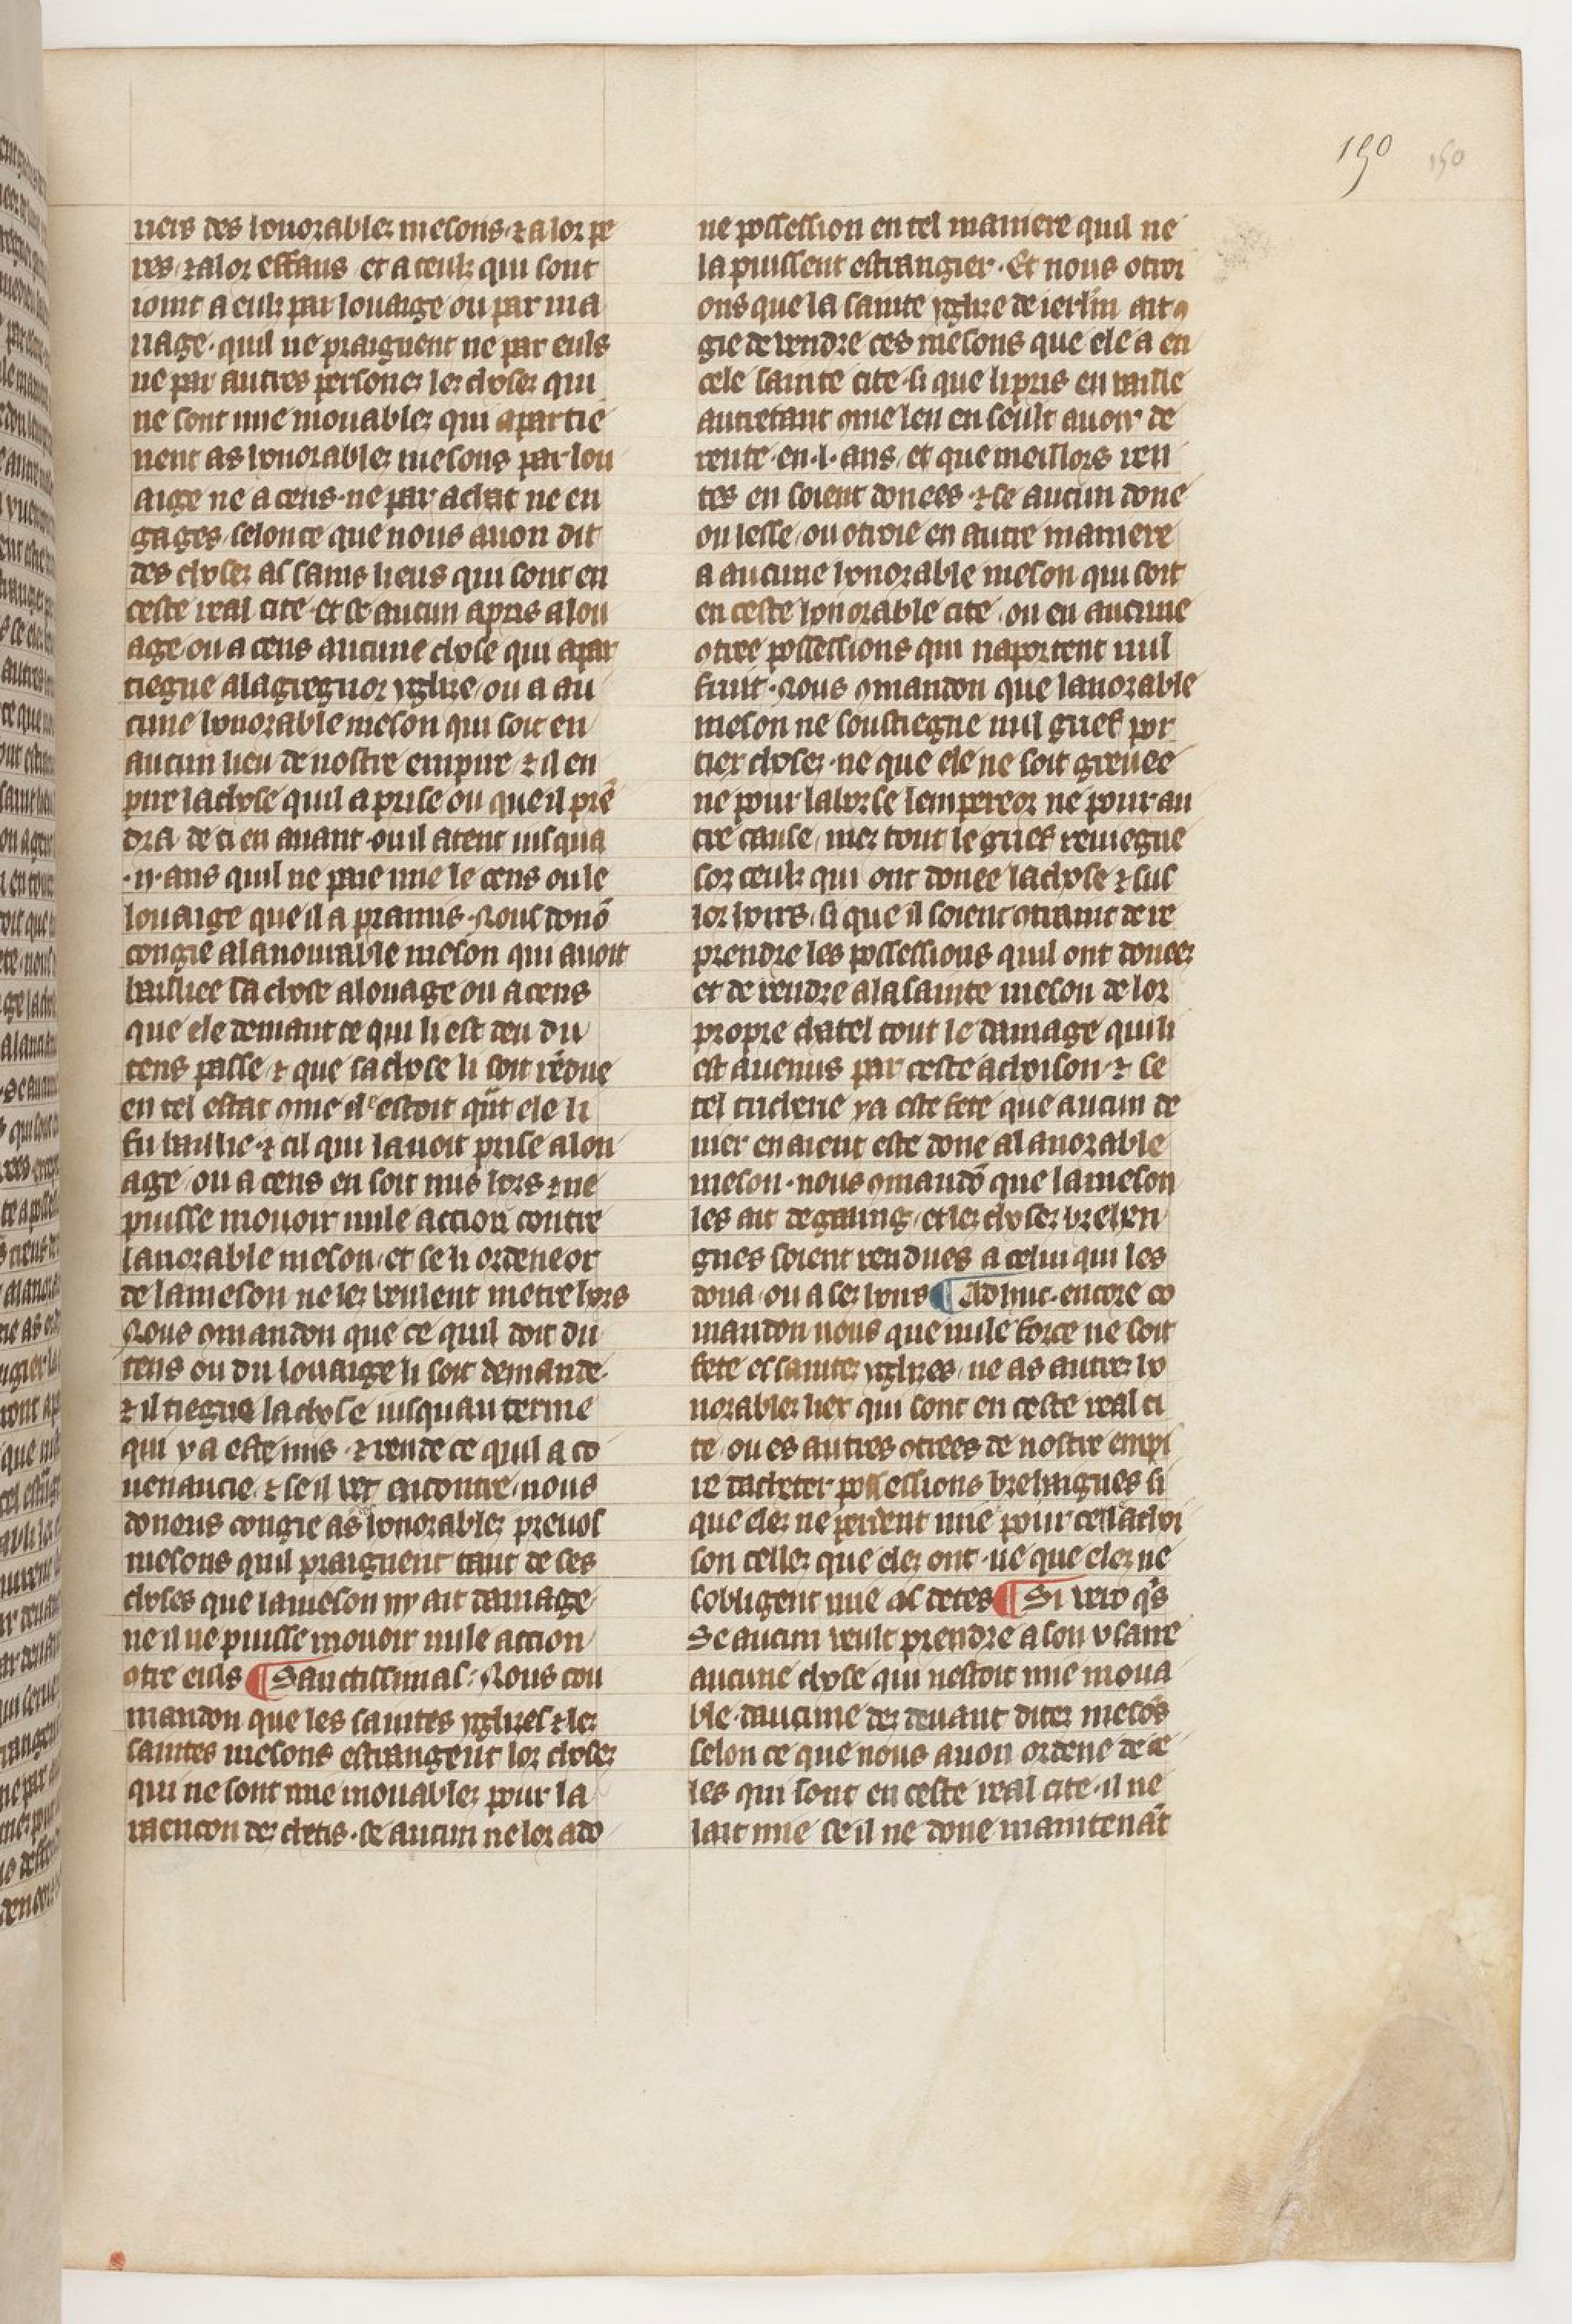 150 150
ners des honorables mesons ⁊ a lor pe
res ⁊ a lor effans et a ceulz qui sont
ioint a eulz par louaige ou par ma
riage quil ne praignent ne par euls
ne par autres persones les choses qui
ne sont mie mouables qui apartie
nent as honorables mesons par lou
aige ne a cens ne par achat ne en
gages selonc ce que nous auon dit
des choses as sains lieus qui sont en
ceste real cite et se aucun a pris a lou
age ou a cens aucune chose qui apar
tiegne a la greignor yglise ou a au
cune honorable meson qui soit en
aucun lieu de nostre empire ⁊ il en
pire la chose quil a prise ou que il prē
dra de ci en auant ou il atent iusqua
.ij. ans quil ne paie mie le cens ou le
louaige que il a pramis Nous donō
congie a lanourable meson qui auoit
bailliee sa chose a louage ou a cens
que ele demant ce qui li est deu du
tens passe ⁊ que sa chose li soit rēdue
en tel estat ꝯme ele estoit qāt ele li
fu baillie ⁊ cil qui lauoit prise a lou
age ou a cens en soit mis hors ⁊ ne
puisse mouoir nule action contre
lanorable meson et se li ordeneor
de la meson ne les veulent metre hors
Nous ꝯmandon que ce quil doit du
tens ou du louaige li soit demande
⁊ il tiegne la chose iusquau terme
qui y a este mis ⁊ rende ce quil a co
uenancie ⁊ se il vet encontre nous
donons congie as honorables preuos
mesons quil praignent tant de ses
choses que la meson ny ait damage
ne il ne puisse mouoir nule action
ꝯtre euls ¶ Sanctissimas Nous con
mandon que les saintes yglises ⁊ les
saintes mesons estrangent lor choses
qui ne sont mie mouables pour la
raencon des chetis se aucun ne lor a do
ne possession en tel maniere quil ne
la puissent estrangier Et nous otroi
ons que la sainte yglise de ierłm ait ꝯ
gie de vendre ces mesons que ele a en
cele sainte cite si que li pris en vaille
autretant ꝯme len en seult auoir de
rente en .l. ans et que meillors ren
tes en soient donees ⁊ se aucun done
ou lesse ou otroie en autre maniere
a aucune honorable meson qui soit
en ceste honorable cite ou en aucune
ꝯtree possessions qui naportent nul
fruit Nous ꝯmandon que lanorable
meson ne soustiegne nul grief por
tier choses ne que ele ne soit greuee
ne pour la borse lempereor ne pour au
tre cause mes tout le grief reuiegne
sor ceulz qui ont donee la chose ⁊ sus
lor hoirs si que il soient ꝯtraint de re
prendre les possessions quil ont donees
et de rendre a la sainte meson de lor
propre chatel tout le damage qui li
est auenus par ceste achoison ⁊ se
tel tricherie y a este fete que aucun de
nier en aient este done a lanorable
meson nous ꝯmandō que la meson
les ait de gaaing et les choses brehen
gnes soient rendues a celui qui les
dona ou a ses hoirs ¶ Ad huc encore co
mandon nous que nule force ne soit
fete es saintes yglises ne as autres ho
norables lies qui sont en ceste real ci
te ou es autres ꝯtrees de nostre empi
re dacheter possessions brehaignes si
que eles ne perdent mie pour cell achoi
son celles que eles ont ne que eles ne
sobligent mie as detes ¶ Si vero qis
Se aucun veult prendre a son vsare
aucune chose qui nestoit mie moua
ble daucune des deuant dites mesōs
selon ce que nous auon ordene de ce
les qui sont en ceste real cite il ne
lait mie se il ne done maintenāt